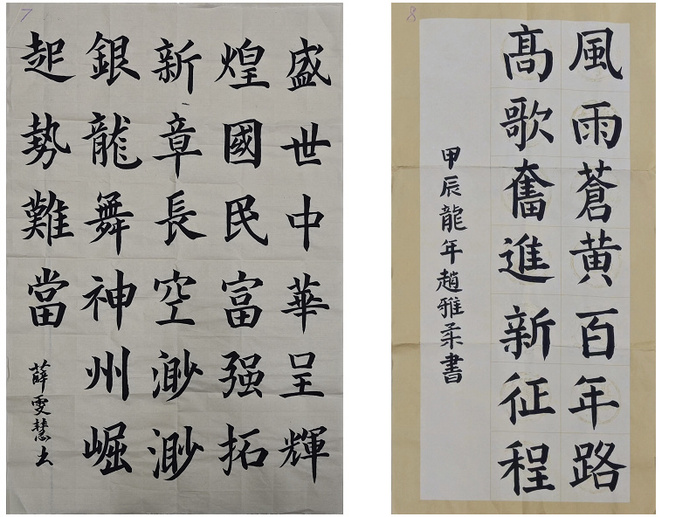 7
盛世中華呈輝
煌國民富强拓
新章長空渺渺
銀龍舞神州崛
起勢難當
薛雯慧书
8
風雨蒼黄百年路
高歌奮進新征程
甲辰龍年趙雅柔書